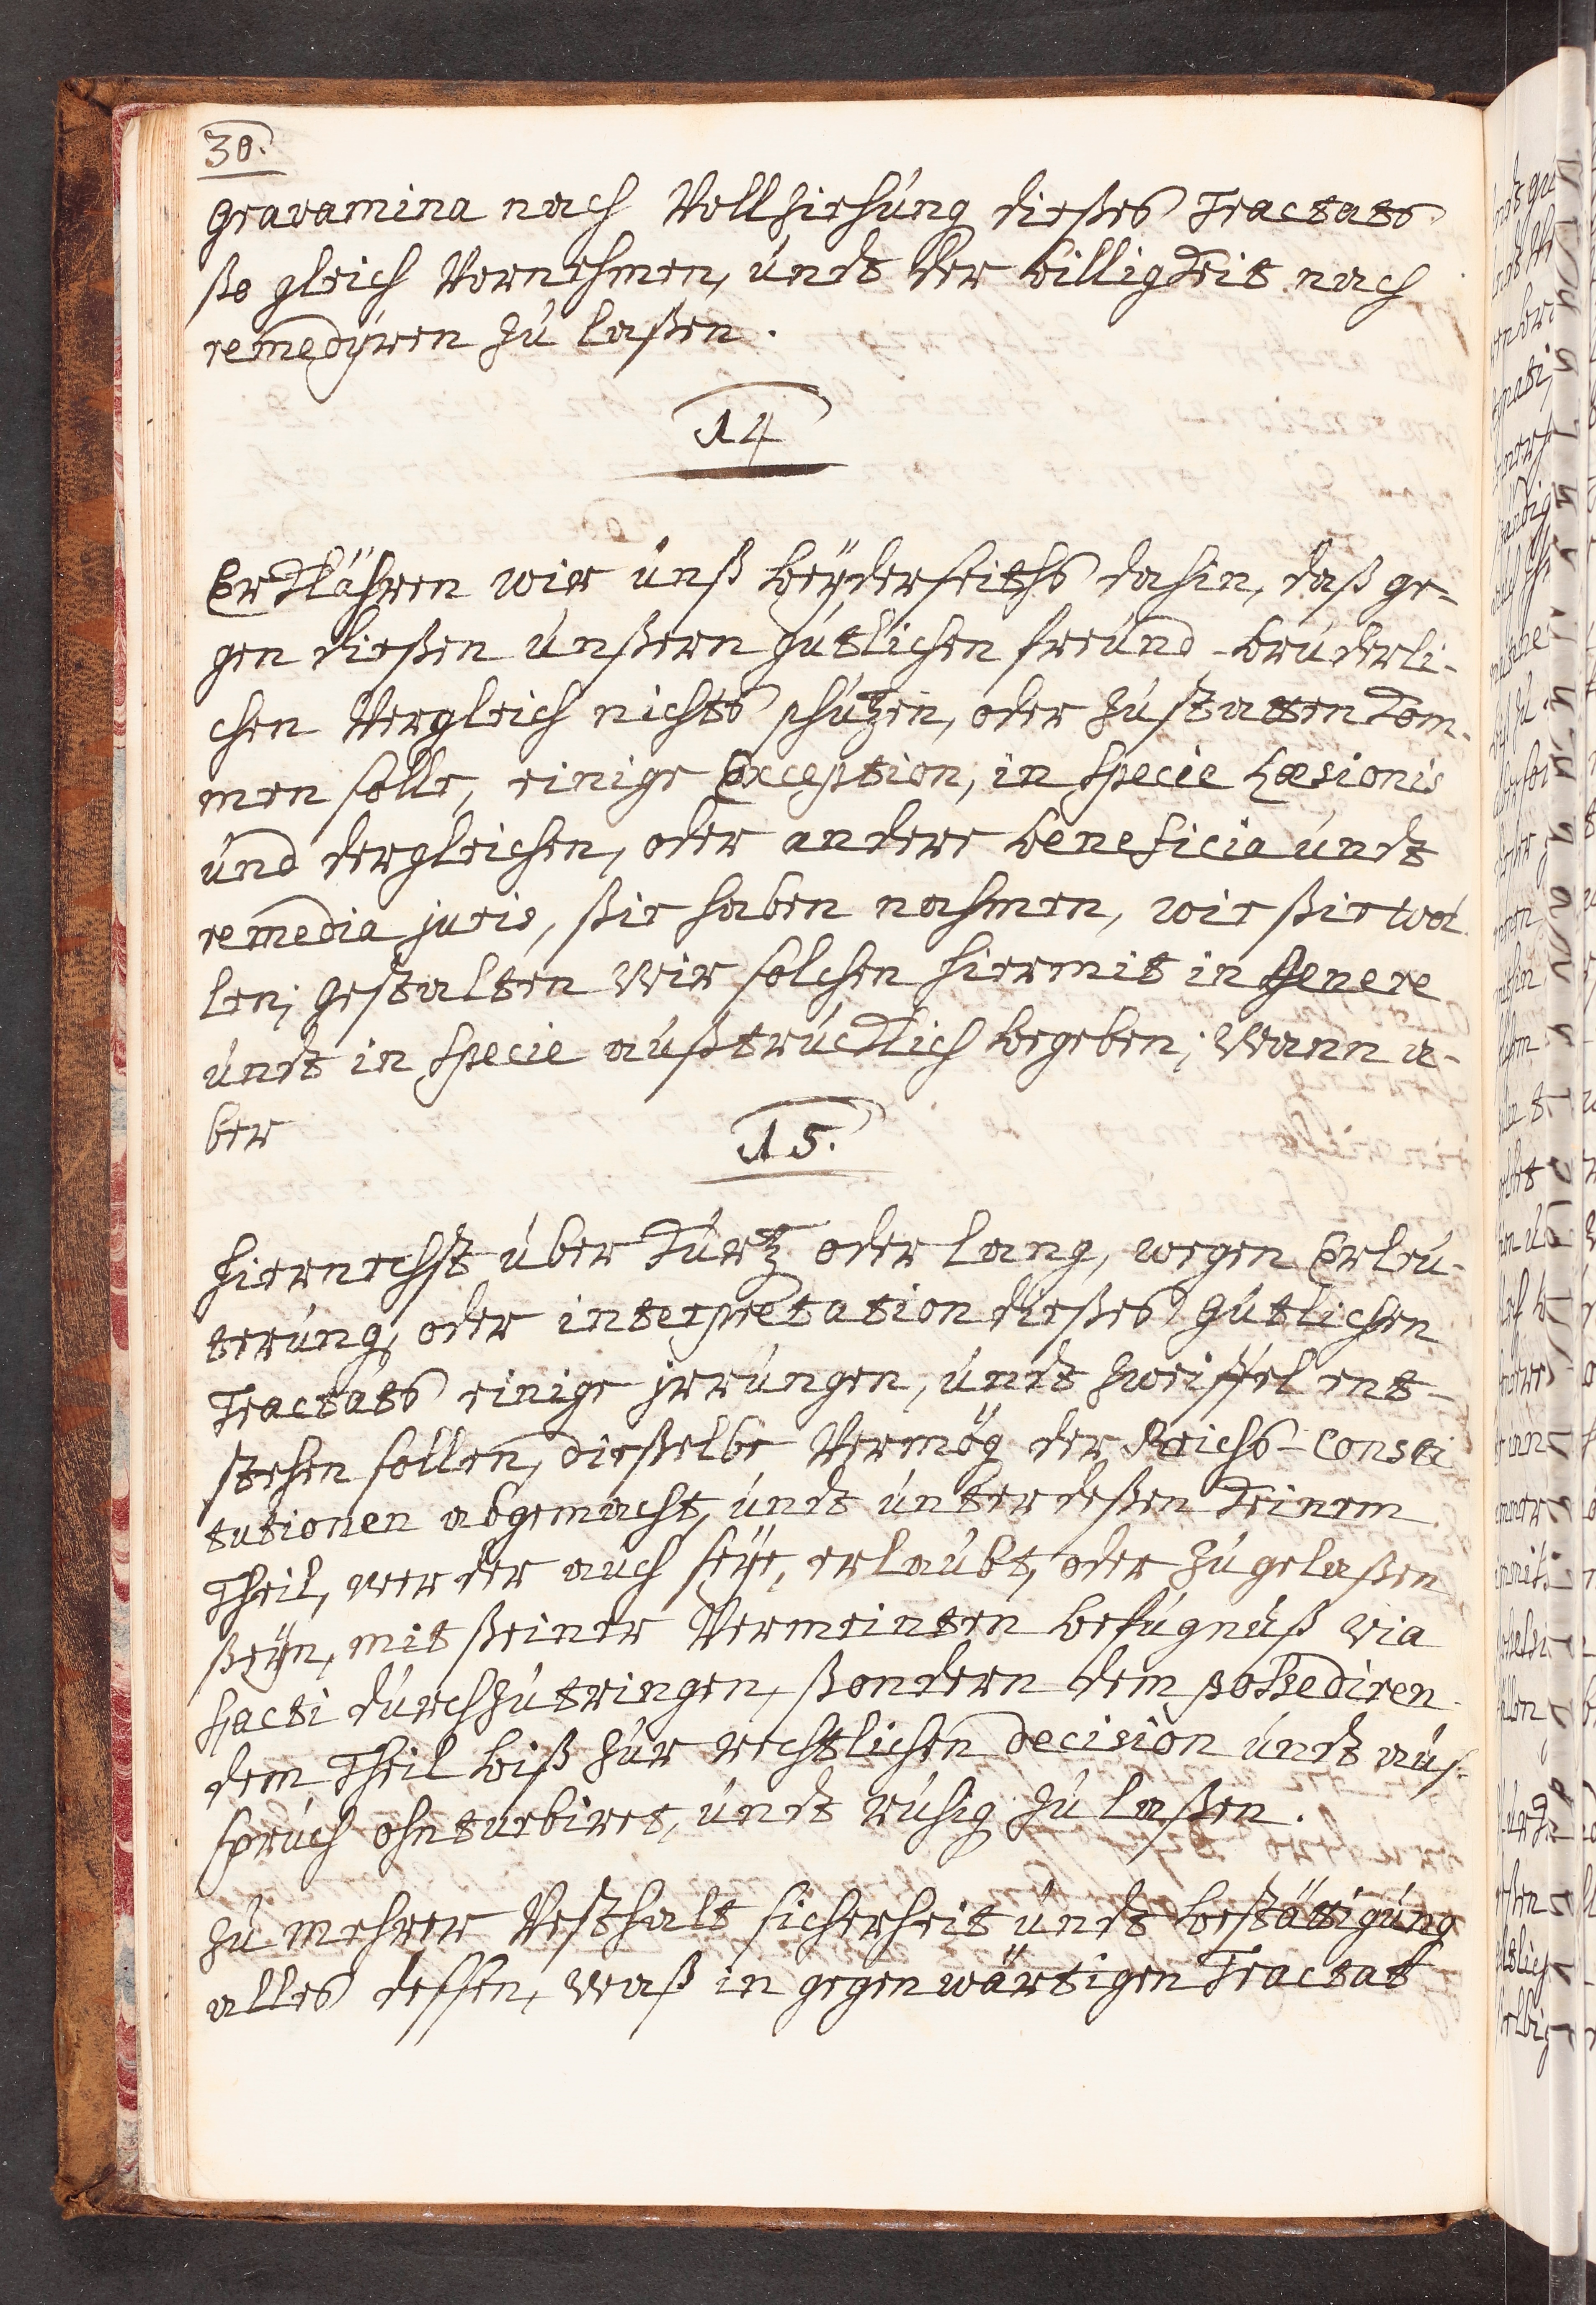 30.
gravamina nach Vollziehung dießes Tractats
ßo gleich Vornehmen, undt der billigkeit nach
remedÿren zu laßen.
14
Erklähren wir unß beÿderseiths dahin, daß ge-
gen dießen unßern gütlichen freund-brüderli-
chen Vergleich nichts schützen, oder zustatten kom-
men solle, einige Exception, in specie Læsionis
und dergleichen, oder andere beneficia undt
remedia juris, ßie haben nahmen, wie ßie wol-
len; gestalten Wir solchen hiermit in genere
undt in specie außtrücklich begeben; Wann a-
ber
15.
hiernechst über kurtz oder lang, wegen Erleu-
terung, oder interpretation dießes gütlichen
Tractats einige jrrungen, undt zweiffel ent-
stehen sollen, dießelbe Vermög der Reichs-Consti
tutionen abgemacht, undt unterdeßen keinem
Theil, wer der auch seÿe, erlaubt, oder zugelaßen
ßeÿn, mit ßeiner Vermeinten befugnüß via
facti durchzutringen, ßondern dem possediren-
dem Theil biß zur rechtlichen decision undt aus-
spruch ohnturbiret, undt ruhig zu laßen.
Zu mehrer Vesthalt sicherheit undt bestättigung
alles dessen, Waß in gegenwärtigen Tractat